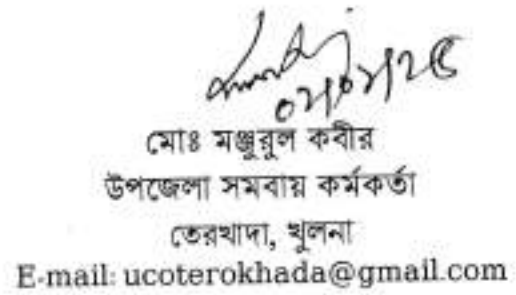 মোঃ মঞ্জুরুল কবীর
উপজেলা সমবায় কর্মকর্তা
তেরখাদা, খুলনা
E-mail: ucoterokhada@gmail.com